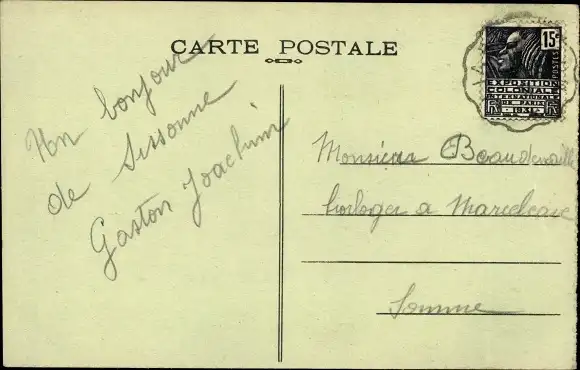 CARTE POSTALE
Un bonjour
de Sissonne
Gaston Joachim
15c
POSTES
EXPOSITION
COLONIALE
INTERNATIONALE
DE PARIS
1931
RF
Monsieur
horloger a Marcelcave
Somme